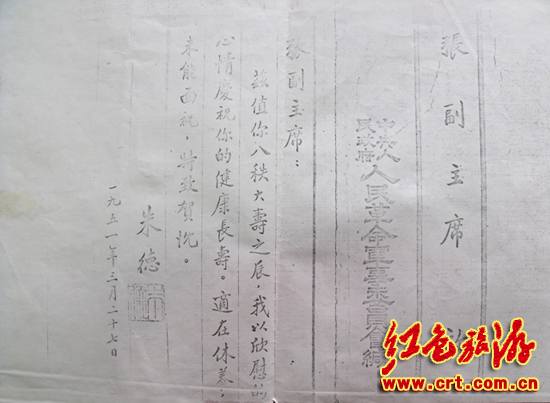 張副主席
中央人
民政府
人民革命軍事委員會
張副主席：
茲值你八秩大壽之辰，我以欣慰的
心情慶祝你的健康長壽。適在休養，
未能面祝，特致賀忱。
朱德
一九五一年三月二十七日
红色旅游
www.crt.com.cn